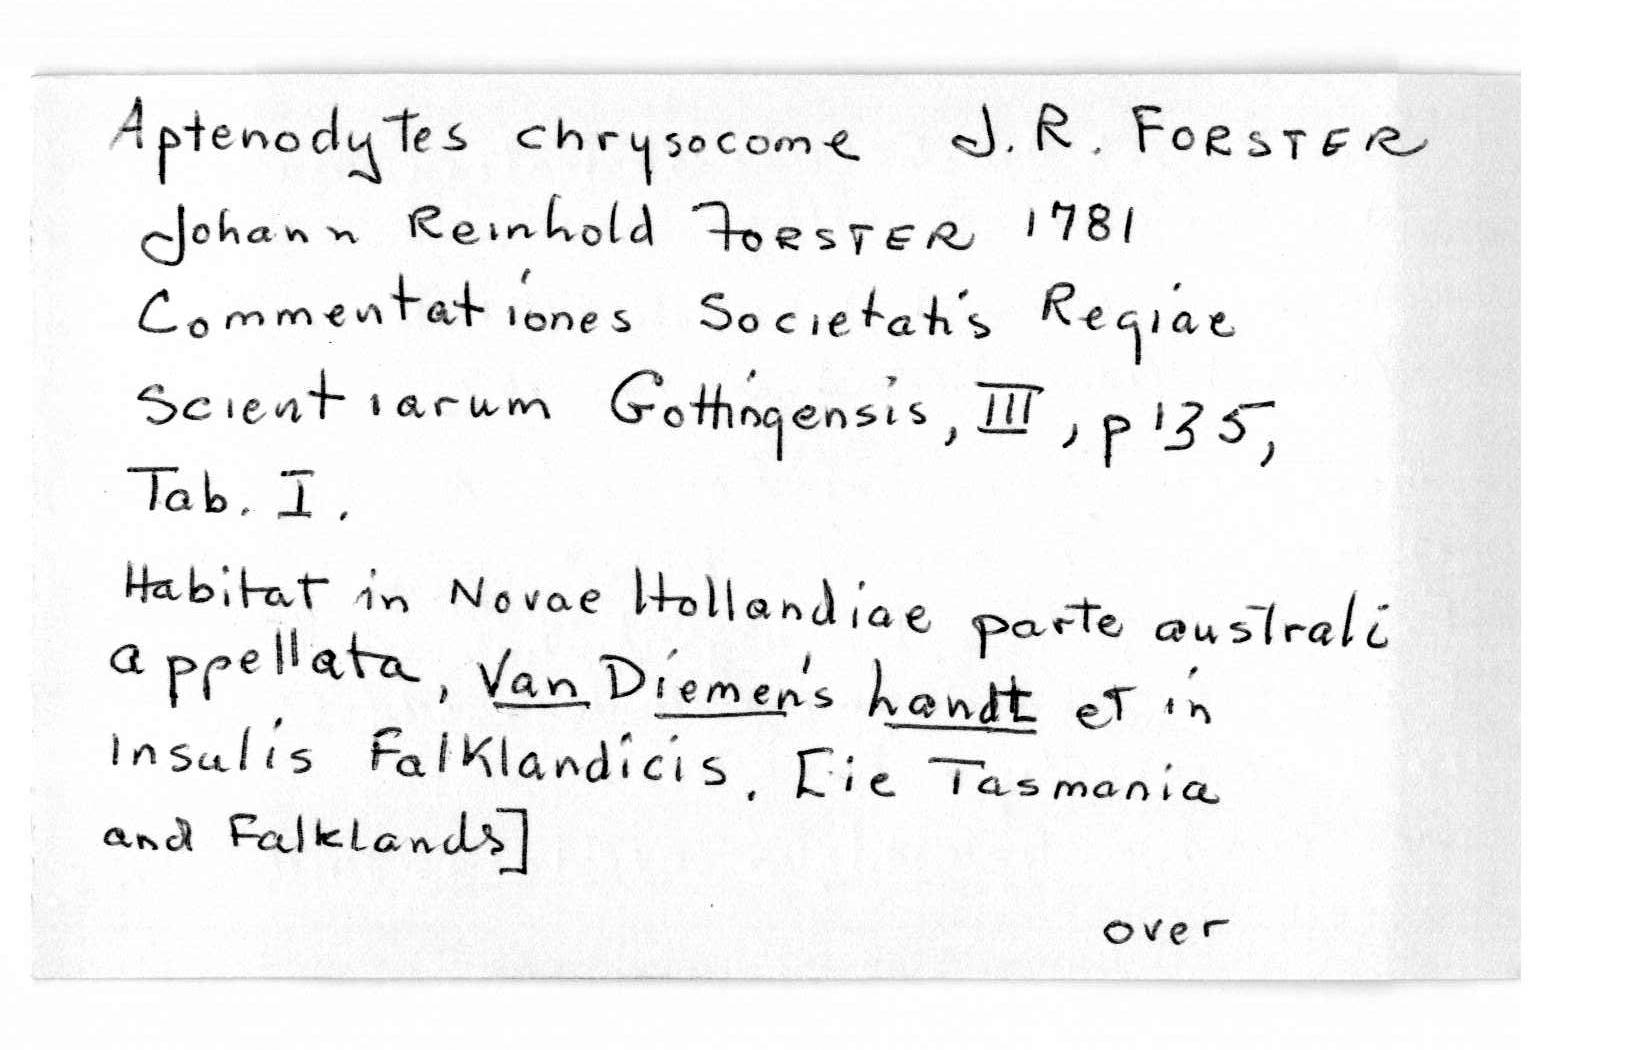 Aptenodytes chrysocome J. R. FORSTER
Johann Reinhold FORSTER 1781
Commentationes Societatis Regiae
Scientiarum Gottingensis, III, p 135,
Tab. I.
Habitat in Novae Hollandiae parte australi
appellata, Van Diemen's handt et in
Insulis Falklandicis. [ie Tasmania
and Falklands]
over